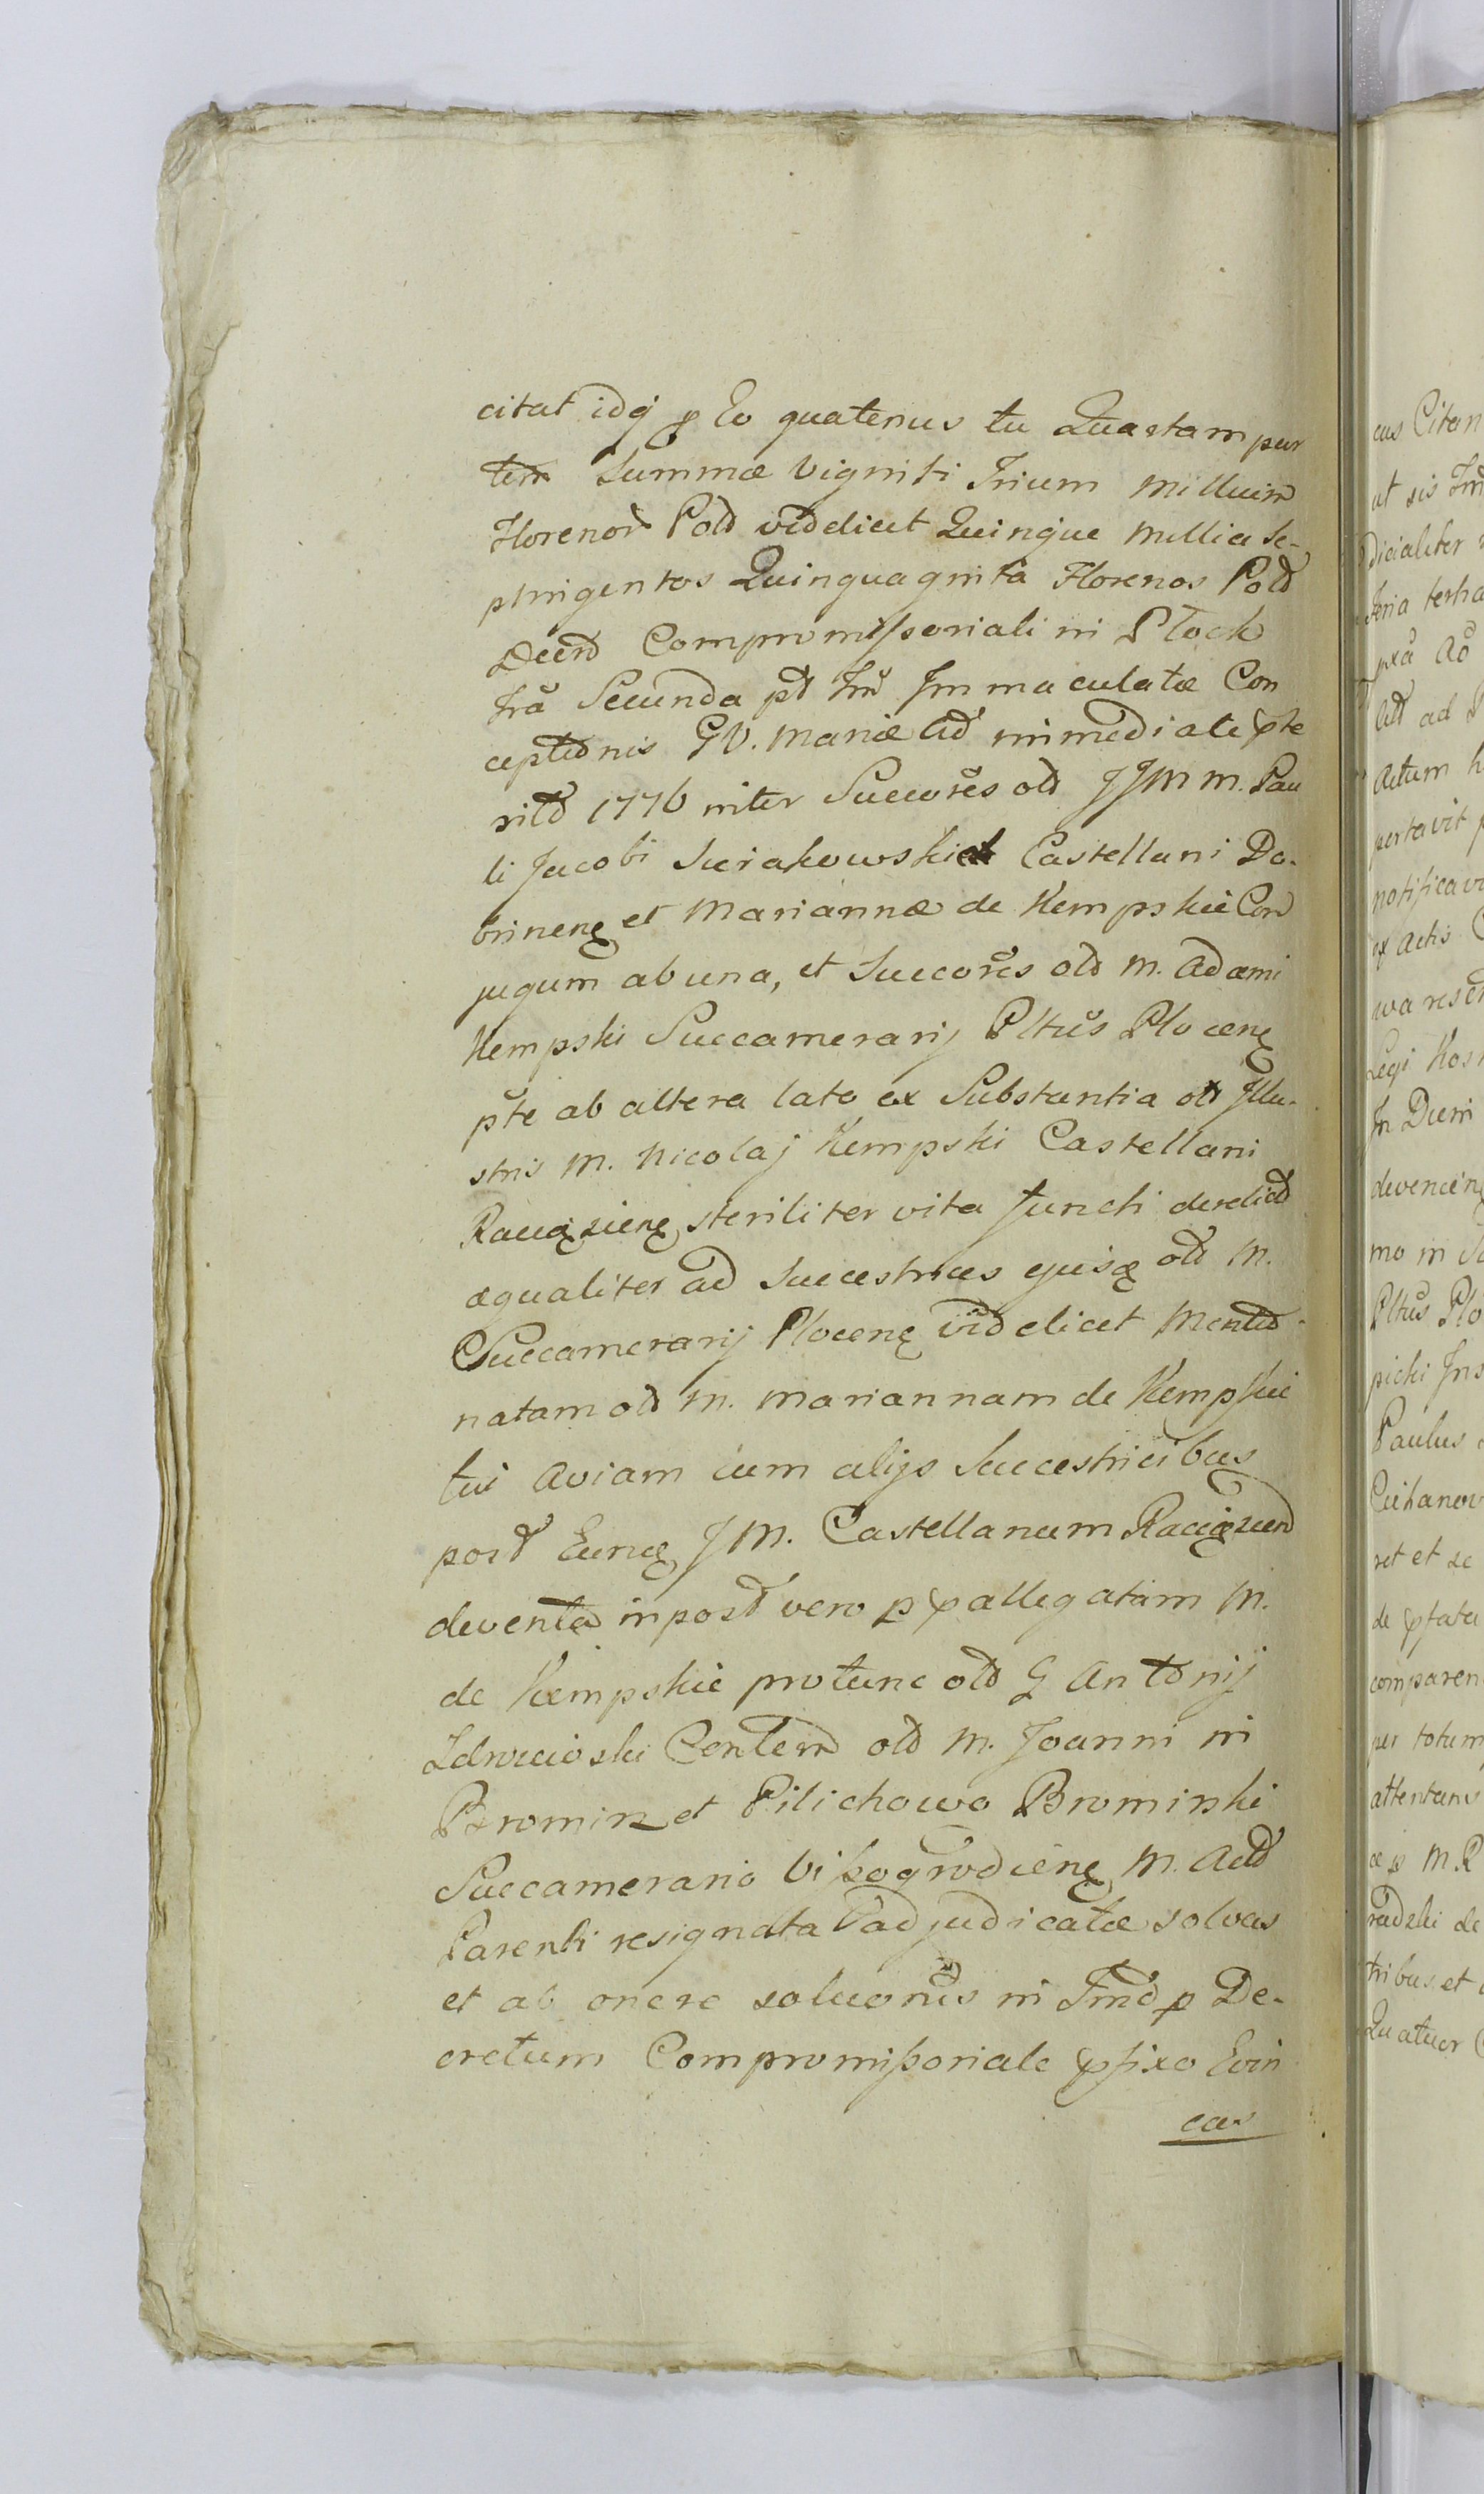 citat idq̃ p Eo quatenus tu Quartam par
tem Summæ Viginti Trium Millium
Florenor Pold videlicet Quinque Millia Se-
ptingentos Quinquaginta Florenos Pold
Decrd Compromissoriali in Płock
Fra Secunda pt Fm Immaculatæ Con
ceptionis GV. Mariæ Ad immediate pte
ritd 1776 inter Succores old JJM M. Pau
li Jacobi Sierakowski Castellani Do-
brinenę et Mariannæ de Kempskie Con
jugum ab una, et Succores old M. Adami
Kempski Succamerarij Pltus Plocenę
pte ab altera lato ex Substantia old Illu-
stris M. Nicolaj Kempski Castellani
Raciązienę steriliter vita functi derelicta
æqualiter ad Succestrices ejusq old M.
Succamerarij Plocenę videlicet Mentio-
natam old M. Mariannam de Kempskie
tui Aviam cum alijs Succestricibus
post Eunđ JM. Castellanum Raciązien
deventa inpost vero p pallegatam M.
de Kempskie protunc old G Antonij
Zdrwioski Contem old M. Joanni in
Bromirz et Pilichowo Bromirski
Succamerario Viszogrodcenę M. Actd
Parenti resignata adjudicatæ solvas
et ab onere solucionis in Fmd p De-
cretum Compromissoriale pfixo Evin
cas
cas Citan
ut sis
dicialiter
Feria tertia
pxa Ao
ad P
Actum
portavit
notificavi
ex Actis

Legi Kos
In Dieni
devencenę
mo in
Pltus Plo
picki Ins
Paulus
Ciechanow
ret et se
de pfata
comparen
per totum
attentans
M. R
radzki de
tribus et
Quatuor